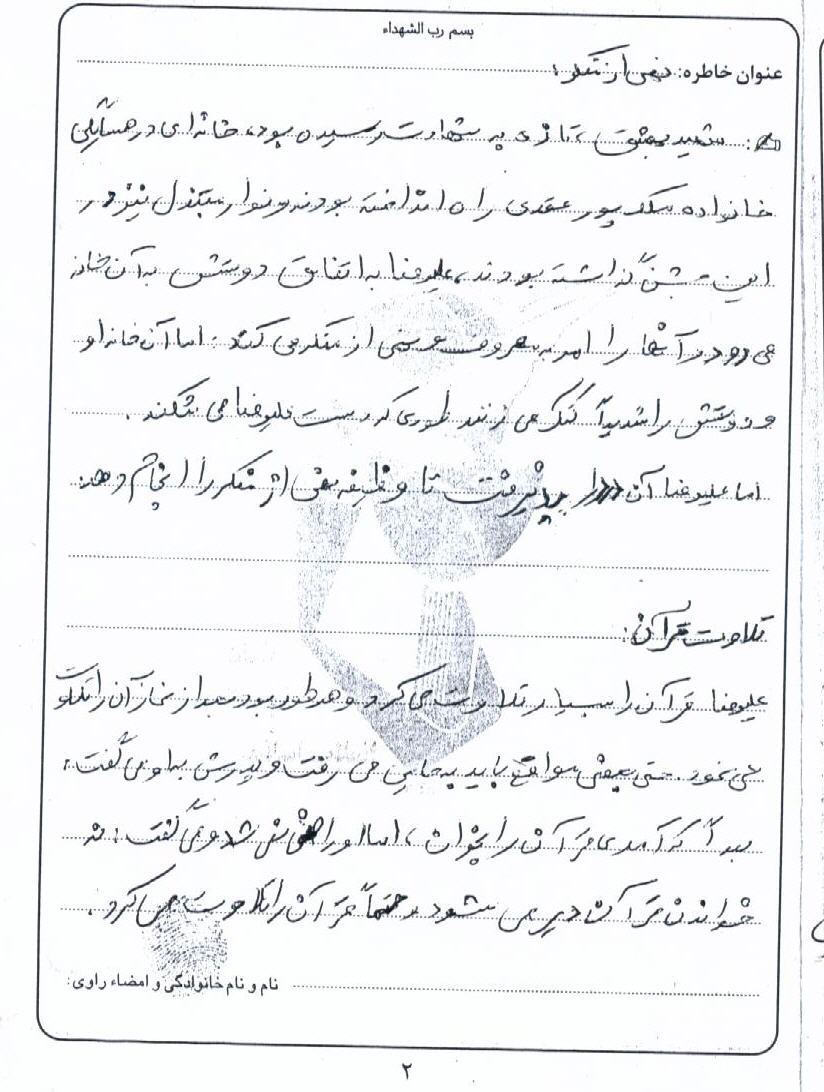 بسم رب الشهداء
عنوان خاطره: نهی از منکر:
شهید بهشتی، تازه به شهادت رسیده بود، خانه‌ای در همسایگی
خانواده ملک پور عقدی راه انداخته بودند و نوار مبتذل نیز در
این جشن گذاشته بودند، علیرضا به اتفاق دوستش به آن خانه
می رود و آنها را امر به معروف و نهی از منکر می کند. اما آن خانه او
و دوستش را شدیداً کتک می زنند طوری که دست علیرضا می شکند.
اما علیرضا آن را پذیرفت تا وظیفه نهی از منکر را انجام دهد.
تلاوت قرآن:
علیرضا قرآن را بسیار تلاوت می کرد و هر طور بود بعد از نماز آن را تلاوت
می نمود. حتی بعضی مواقع باید به جایی می رفت و پدرش به او می گفت:
بعداً که آمدی قرآن را بخوان، اما او راضی نمی شد و می گفت: نه
خواندن قرآن دیر می شود و حتماً قرآن را تلاوت می کرد.
نام و نام خانوادگی و امضاء راوی:
۲